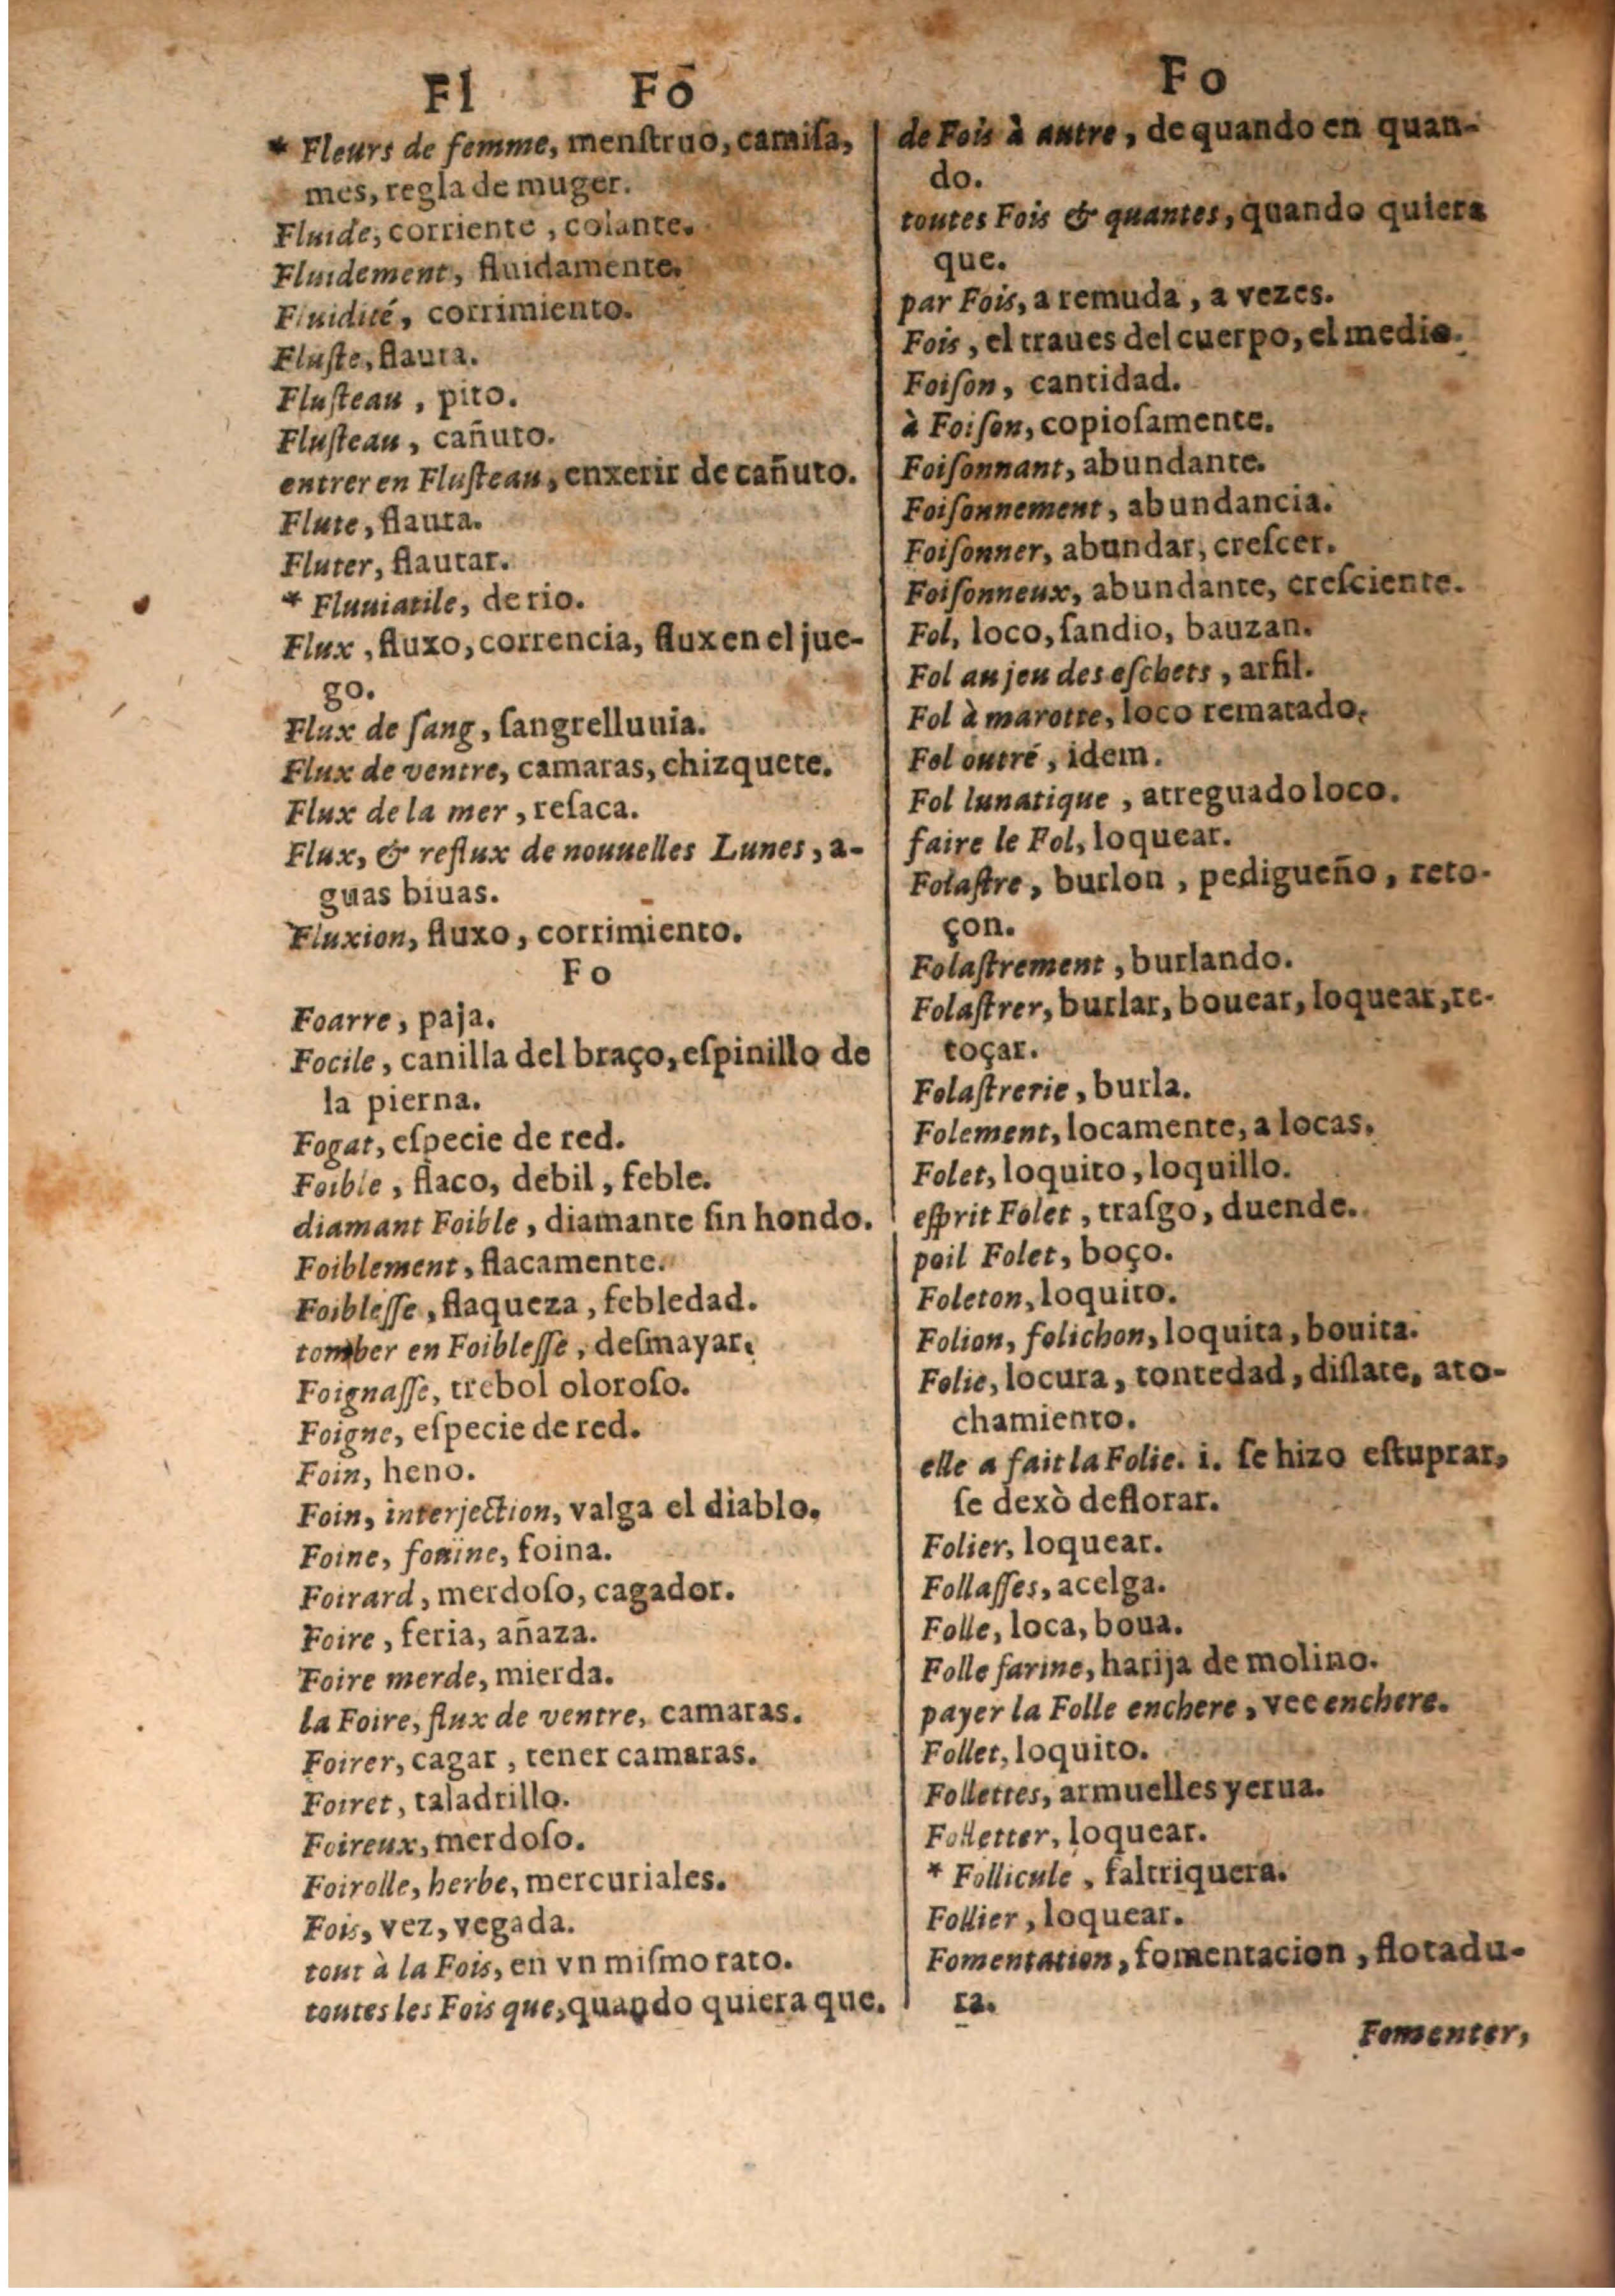 Fl Fo
* Fleurs de femme, menſtruo, camiſa,
mes, regla de muger.
Fluide, corriente, colante.
Fluidement, fluidamente.
Fluidité, corrimiento.
Fluſte, flauta.
Fluſteau, pito.
Fluſteau, cañuto.
entrer en Fluſteau, enxerir de cañuto.
Flute, flauta.
Fluter, flautar.
* Fluuiatile, de rio.
Flux, fluxo, correncia, flux en el jue-
go.
Flux de ſang, ſangrelluuia.
Flux de ventre, camaras, chizquete.
Flux de la mer, reſaca.
Flux, & reflux de nouuelles Lunes, a-
guas biuas.
Fluxion, fluxo, corrimiento.
Fo
Foarre, paja.
Focile, canilla del braço, eſpinillo de
la pierna.
Fogat, eſpecie de red.
Foible, flaco, debil, feble.
diamant Foible, diamante ſin hondo.
Foiblement, flacamente.
Foibleſſe, flaqueza, febledad.
tomber en Foibleſſe, deſmayar.
Foignaſſe, trebol oloroſo.
Foigne, eſpecie de red.
Foin, heno.
Foin, interjection, valga el diablo.
Foine, fouine, foina.
Foirard, merdoſo, cagador.
Foire, feria, añaza.
Foire merde, mierda.
la Foire, flux de ventre, camaras.
Foirer, cagar, tener camaras.
Foiret, taladrillo.
Foireux, merdoſo.
Foirolle, herbe, mercuriales.
Fois, vez, vegada.
tout à la Fois, en vn miſmo rato.
toutes les Fois que, quando quiera que.
Fo
de Fois à autre, de quando en quan-
do.
toutes Fois & quantes, quando quiera
que.
par Fois, a remuda, a vezes.
Fois, el traues del cuerpo, el medio.
Foiſon, cantidad.
à Foiſon, copioſamente.
Foiſonnant, abundante.
Foiſonnement, abundancia.
Foiſonner, abundar, creſcer.
Foiſonneux, abundante, creſciente.
Fol, loco, ſandio, bauzan.
Fol au jeu des eſchets, arfil.
Fol à marotte, loco rematado.
Fol outré, idem.
Fol lunatique, atreguado loco.
faire le Fol, loquear.
Folaſtre, burlon, pedigueño, reto-
çon.
Folaſtrement, burlando.
Folaſtrer, burlar, bouear, loquear, re-
toçar.
Folaſtrerie, burla.
Folement, locamente, a locas.
Folet, loquito, loquillo.
eſprit Folet, traſgo, duende.
poil Folet, boço.
Foleton, loquito.
Folion, folichon, loquita, bouita.
Folie, locura, tontedad, diſlate, ato-
chamiento.
elle a fait la Folie. i. ſe hizo eſtuprar,
ſe dexò deflorar.
Folier, loquear.
Follaſſes, acelga.
Folle, loca, boua.
Folle farine, harija de molino.
payer la Folle enchere, vee enchere.
Follet, loquito.
Follettes, armuelles yerua.
Folletter, loquear.
* Follicule, faltriquera.
Follier, loquear.
Fomentation, fomentacion, flotadu-
ra.
Fomenter,